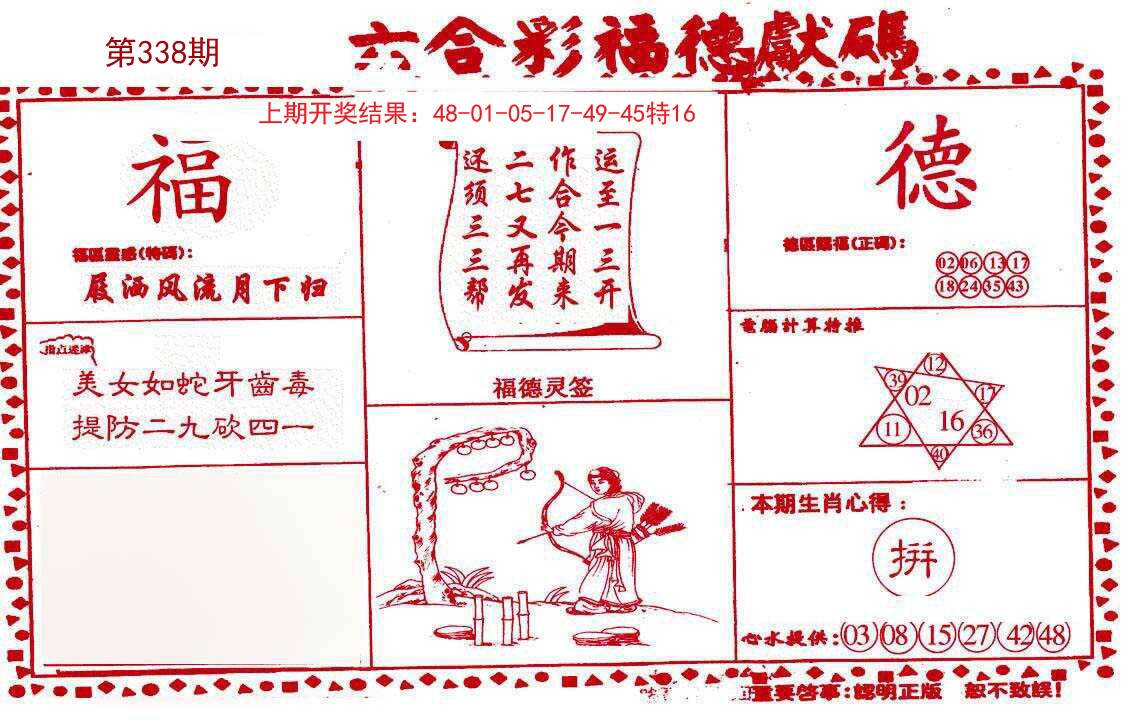 第338期
六合彩福德獻碼
上期开奖结果：48-01-05-17-49-45特16
福
福區靈感(特碼)：
屐洒风流月下归
指点迷津
美女如蛇牙齒毒
提防二九砍四一
运至一三开
作合今期来
二七又再发
还须三三帮
福德灵签
德
德區賜福(正碼)：
02 06 13 17
18 24 35 43
電腦計算特推
12
39 02 17
11 16 36
40
本期生肖心得：
拼
心水提供：03 08 15 27 42 48
重要啓事：認明正版 恕不致誤！